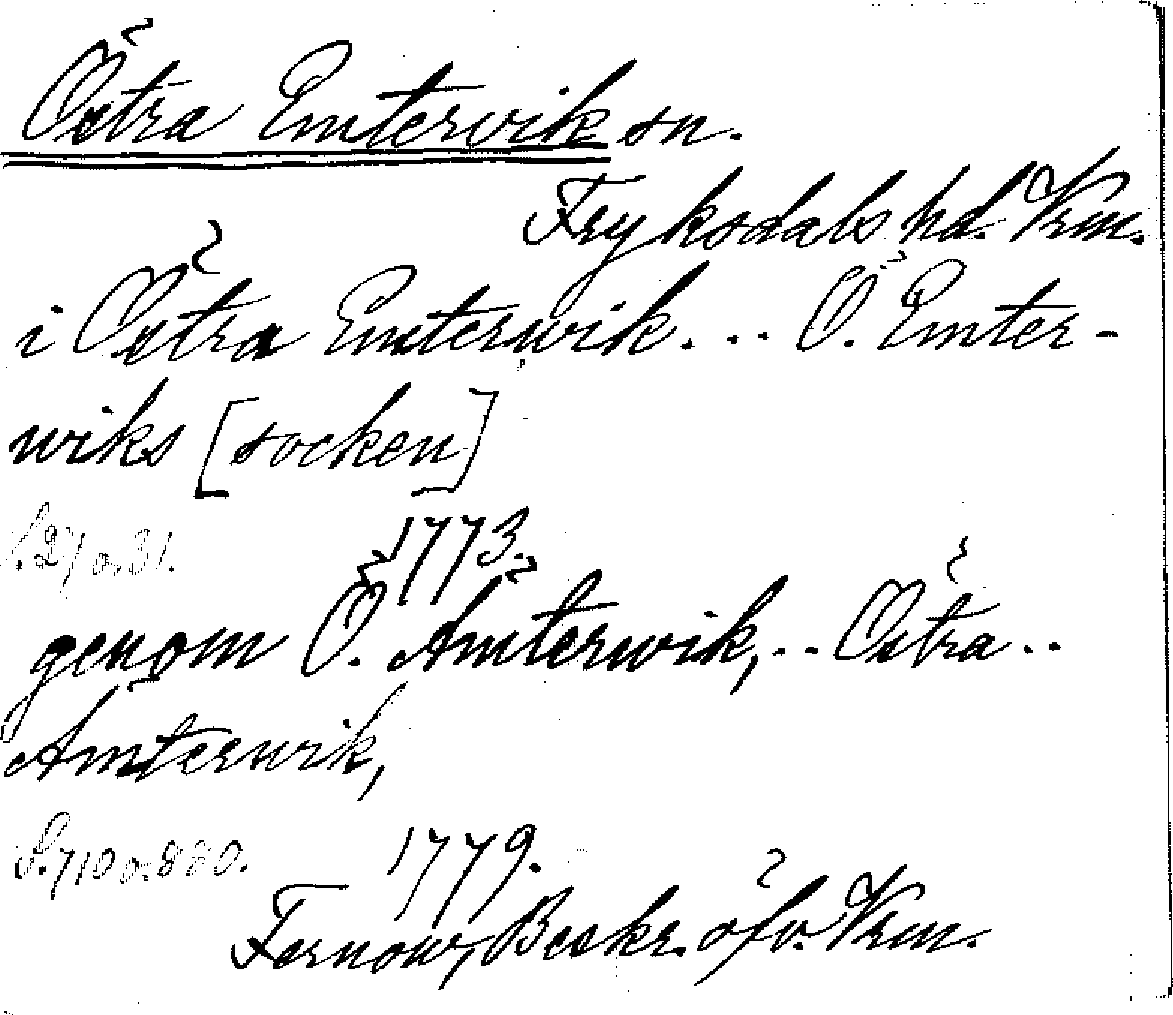 Östra Emtervik sn.
Fryksdals hd. Vrm.
i Östra Emterwik... Ö. Emter-
wiks [socken]
S. 27 o. 31.
1773.
genom Ö. Ämterwik,.. Östra..
Ämterwik,
S. 710 o. 880.
1779.
Fernow, Beskr. öfv. Vrm.